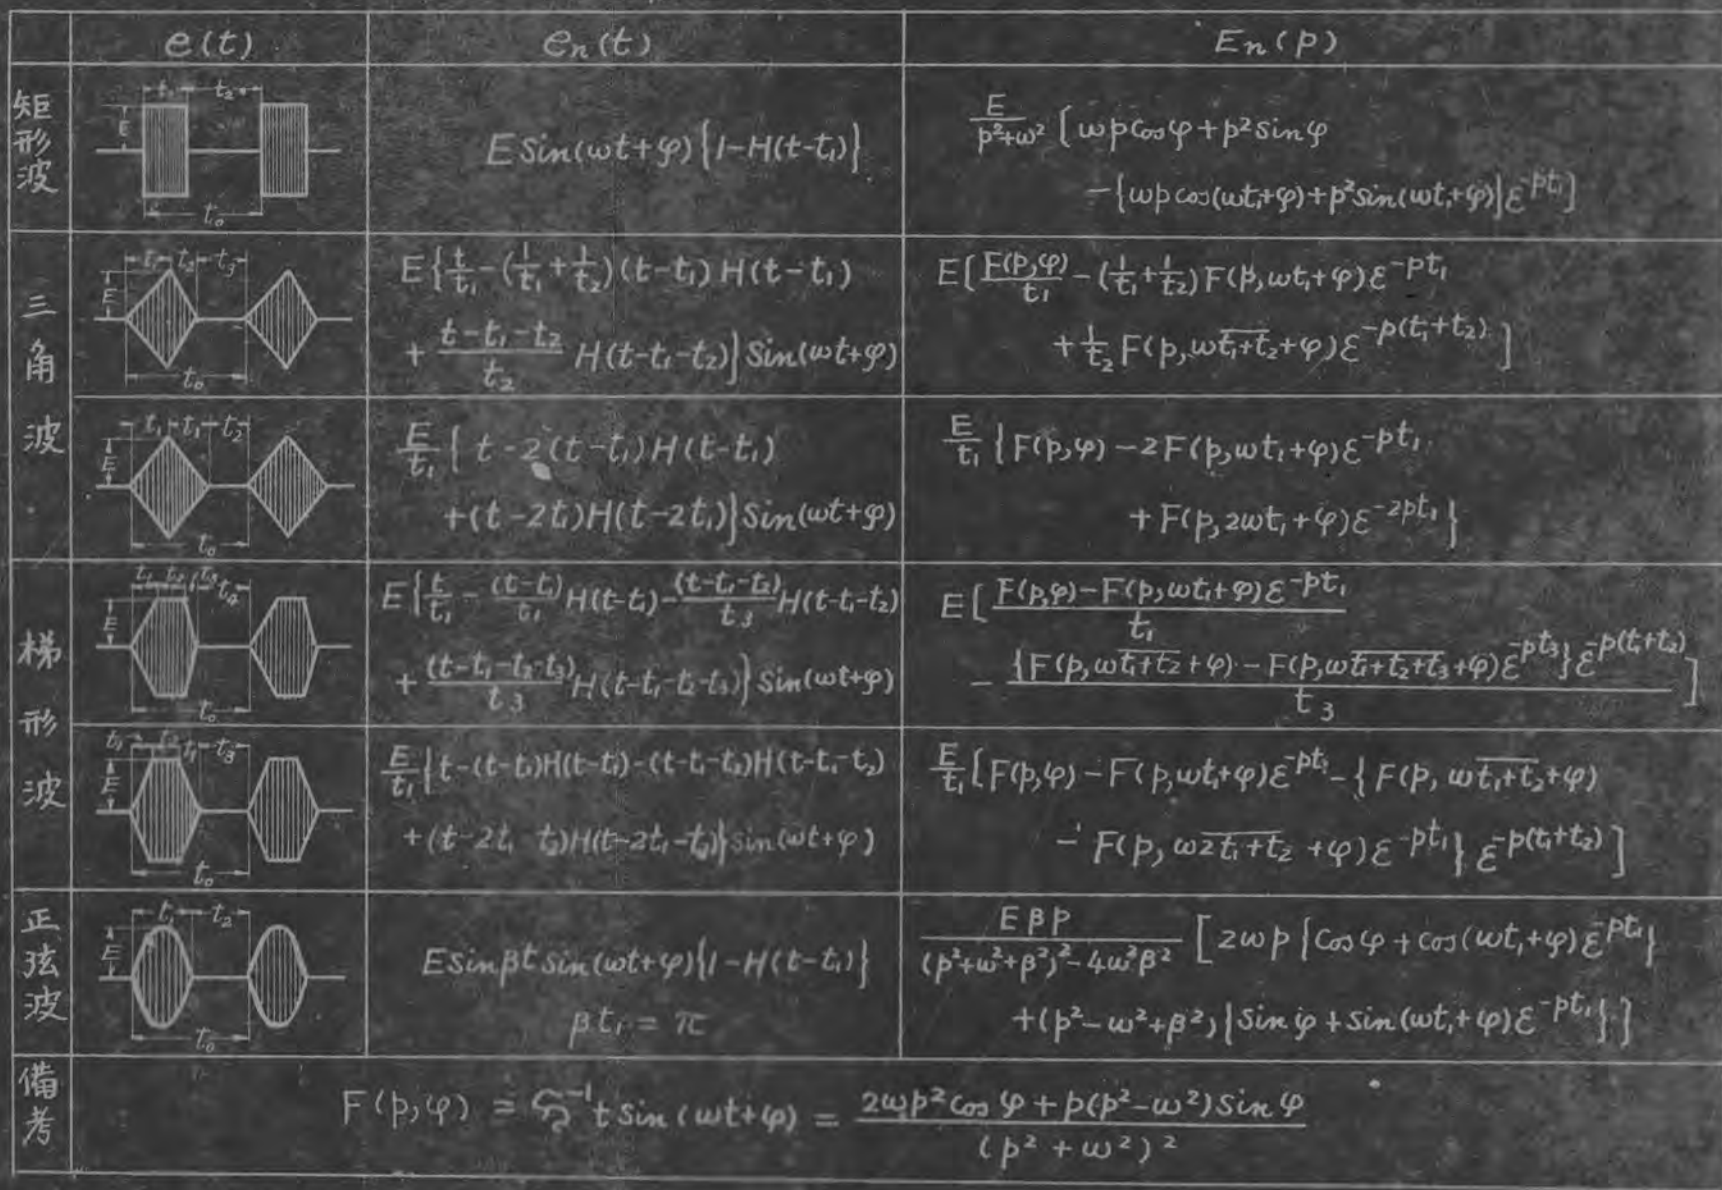 e(t) eₙ(t) Eₙ(p)
矩形波
t₁ t₂
E
t₀
E Sin(ωt+φ){1-H(t-t₁)}
E/(p²+ω²) [ωp cosφ + p² sinφ
-{ωp cos(ωt₁+φ)+p² sin(ωt₁+φ)}ε^{-pt₁}]
三角波
t₁ t₂ t₃
E
t₀
E{t/t₁ - (1/t₁ + 1/t₂)(t-t₁)H(t-t₁)
+ (t-t₁-t₂)/t₂ H(t-t₁-t₂)} Sin(ωt+φ)
E[F(p,φ)/t₁ - (1/t₁ + 1/t₂)F(p,ωt₁+φ)ε^{-pt₁}
+ 1/t₂ F(p,ω\overline{t₁+t₂}+φ)ε^{-p(t₁+t₂)}]
t₁ t₁ t₂
E
t₀
E/t₁ {t-2(t-t₁)H(t-t₁)
+(t-2t₁)H(t-2t₁)} Sin(ωt+φ)
E/t₁ {F(p,φ)-2F(p,ωt₁+φ)ε^{-pt₁}
+F(p,2ωt₁+φ)ε^{-2pt₁}}
梯形波
t₁ t₂ t₃ t₄
E
t₀
E{t/t₁ - (t-t₁)/t₁ H(t-t₁) - (t-t₁-t₂)/t₃ H(t-t₁-t₂)
+ (t-t₁-t₂-t₃)/t₃ H(t-t₁-t₂-t₃)} Sin(ωt+φ)
E[(F(p,φ)-F(p,ωt₁+φ)ε^{-pt₁})/t₁
- {F(p,ω\overline{t₁+t₂}+φ)-F(p,ω\overline{t₁+t₂+t₃}+φ)ε^{-pt₃}}ε^{-p(t₁+t₂)}/t₃]
t₁ t₂ t₁ t₃
E
t₀
E/t₁ {t-(t-t₁)H(t-t₁)-(t-t₁-t₂)H(t-t₁-t₂)
+(t-2t₁ t₂)H(t-2t₁-t₂)} sin(ωt+φ)
E/t₁ [F(p,φ)-F(p,ωt₁+φ)ε^{-pt₁}-{F(p,ω\overline{t₁+t₂}+φ)
-F(p,ω\overline{2t₁+t₂}+φ)ε^{-pt₁}}ε^{-p(t₁+t₂)}]
正弦波
t₁ t₂
E
t₀
E sinβt sin(ωt+φ){1-H(t-t₁)}
βt₁=π
Eβp/((p²+ω²+β²)²-4ω²β²) [2ωp{cosφ+cos(ωt₁+φ)ε^{-pt₁}}
+(p²-ω²+β²){sinφ+sin(ωt₁+φ)ε^{-pt₁}}]
備考
F(p,φ) = ⁻¹ t sin(ωt+φ) = (2ωp² cosφ + p(p²-ω²) sinφ)/(p²+ω²)²